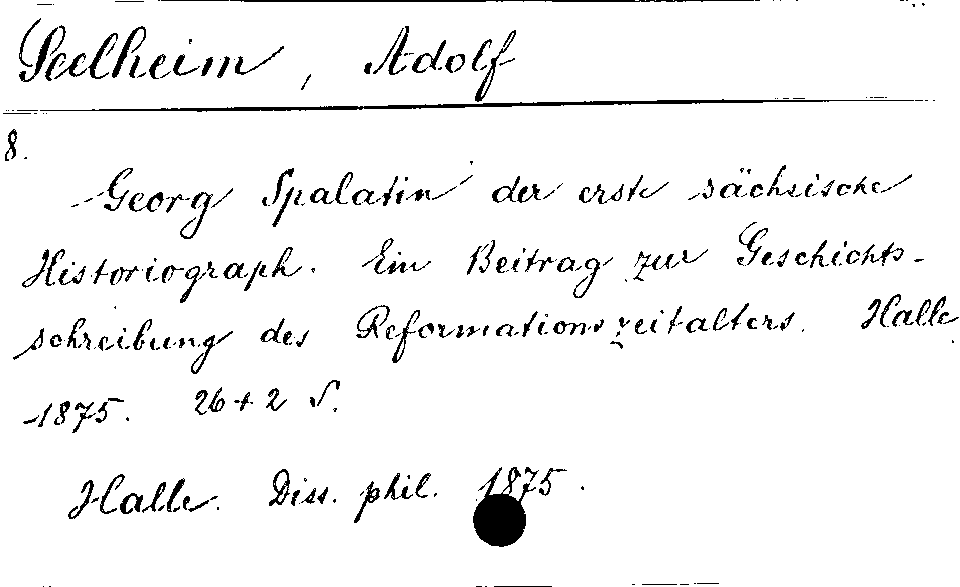 Seelheim, Adolf
8.
Georg Spalatin der erste sächsische
Historiograph. Ein Beitrag zur Geschichts-
schreibung des Reformationszeitalters. Halle
1875. 26+2 S.
Halle. Diss. phil. 1875.